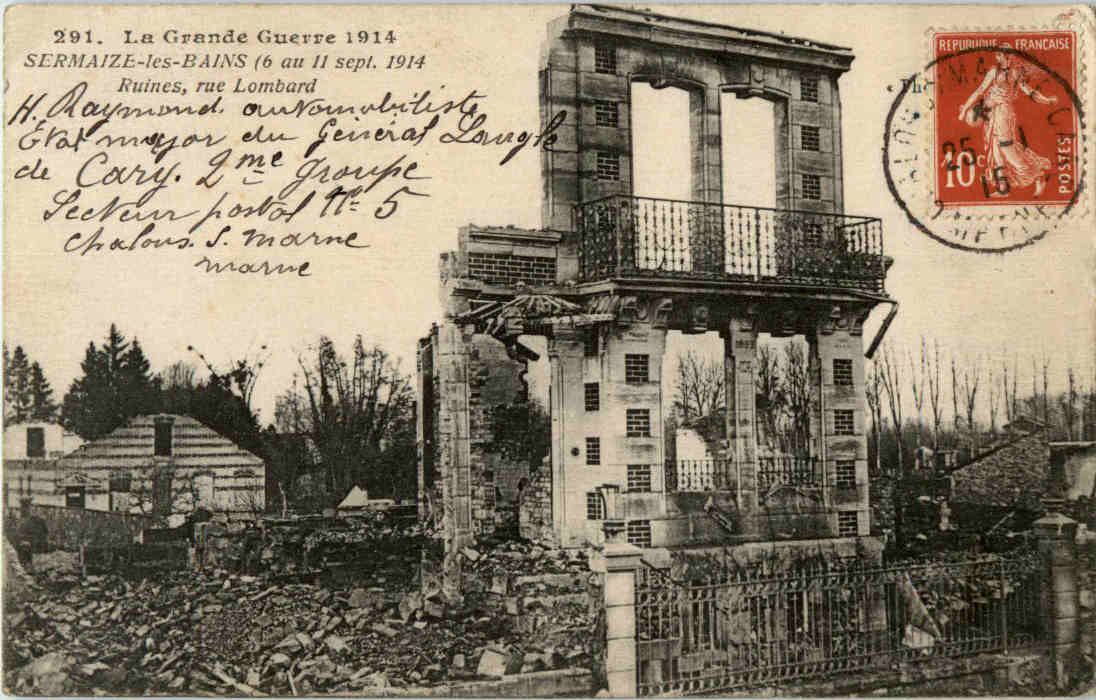 291. La Grande Guerre 1914
SERMAIZE-les-BAINS (6 au 11 sept. 1914
Ruines, rue Lombard
H. Raymond automobiliste
Etat mayor du Général Langle
de Cary. 2me groupe
Secteur postal No 5
Chalons. S. Marne
marne
REPUBLIQUE FRANÇAISE
10c
POSTES
25 -1
15
MARNE